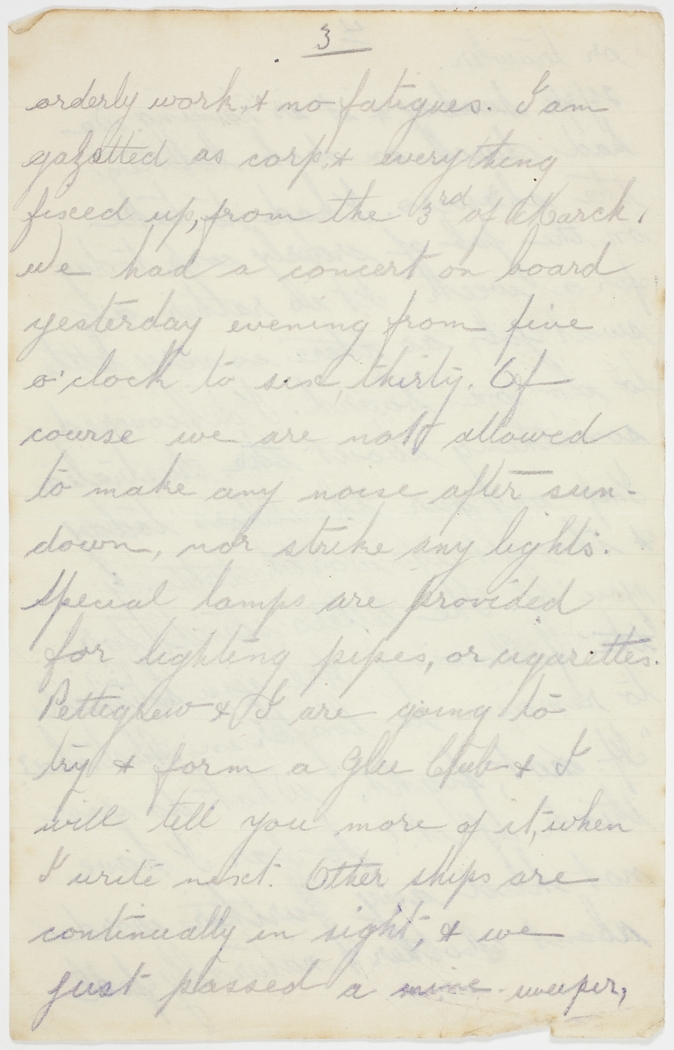 3
orderly work, & no fatigues. I am
gazetted as corp, & everything
fixed up, from the 3rd of March.
We had a concert on board
yesterday evening from five
o'clock to six, thirty. Of
course we are not allowed
to make any noise after sun-
down, nor strike any lights.
Special lamps are provided
for lighting pipes, or cigarettes.
Pettegrew & I are going to
try & form a Glee Club & I
will tell you more of it, when
I write next. Other ships are
continually in sight, & we
just passed a mine-sweeper,